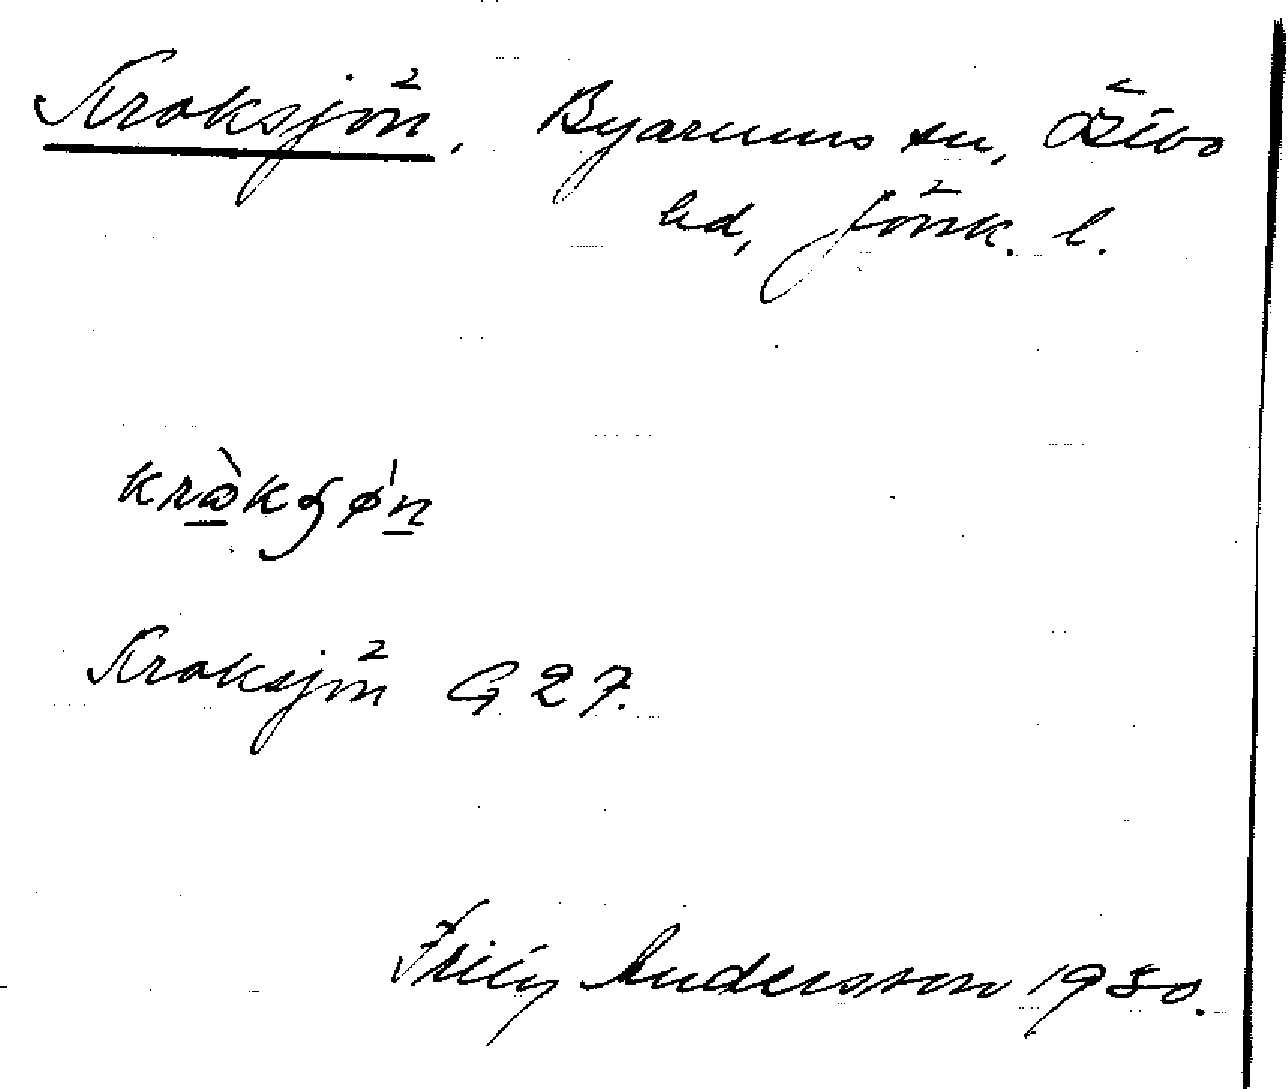 Kroksjön, Byarums sn, Östbo
hd, Jönk. l.
Kroksjön G 27.
Andersson 1930.